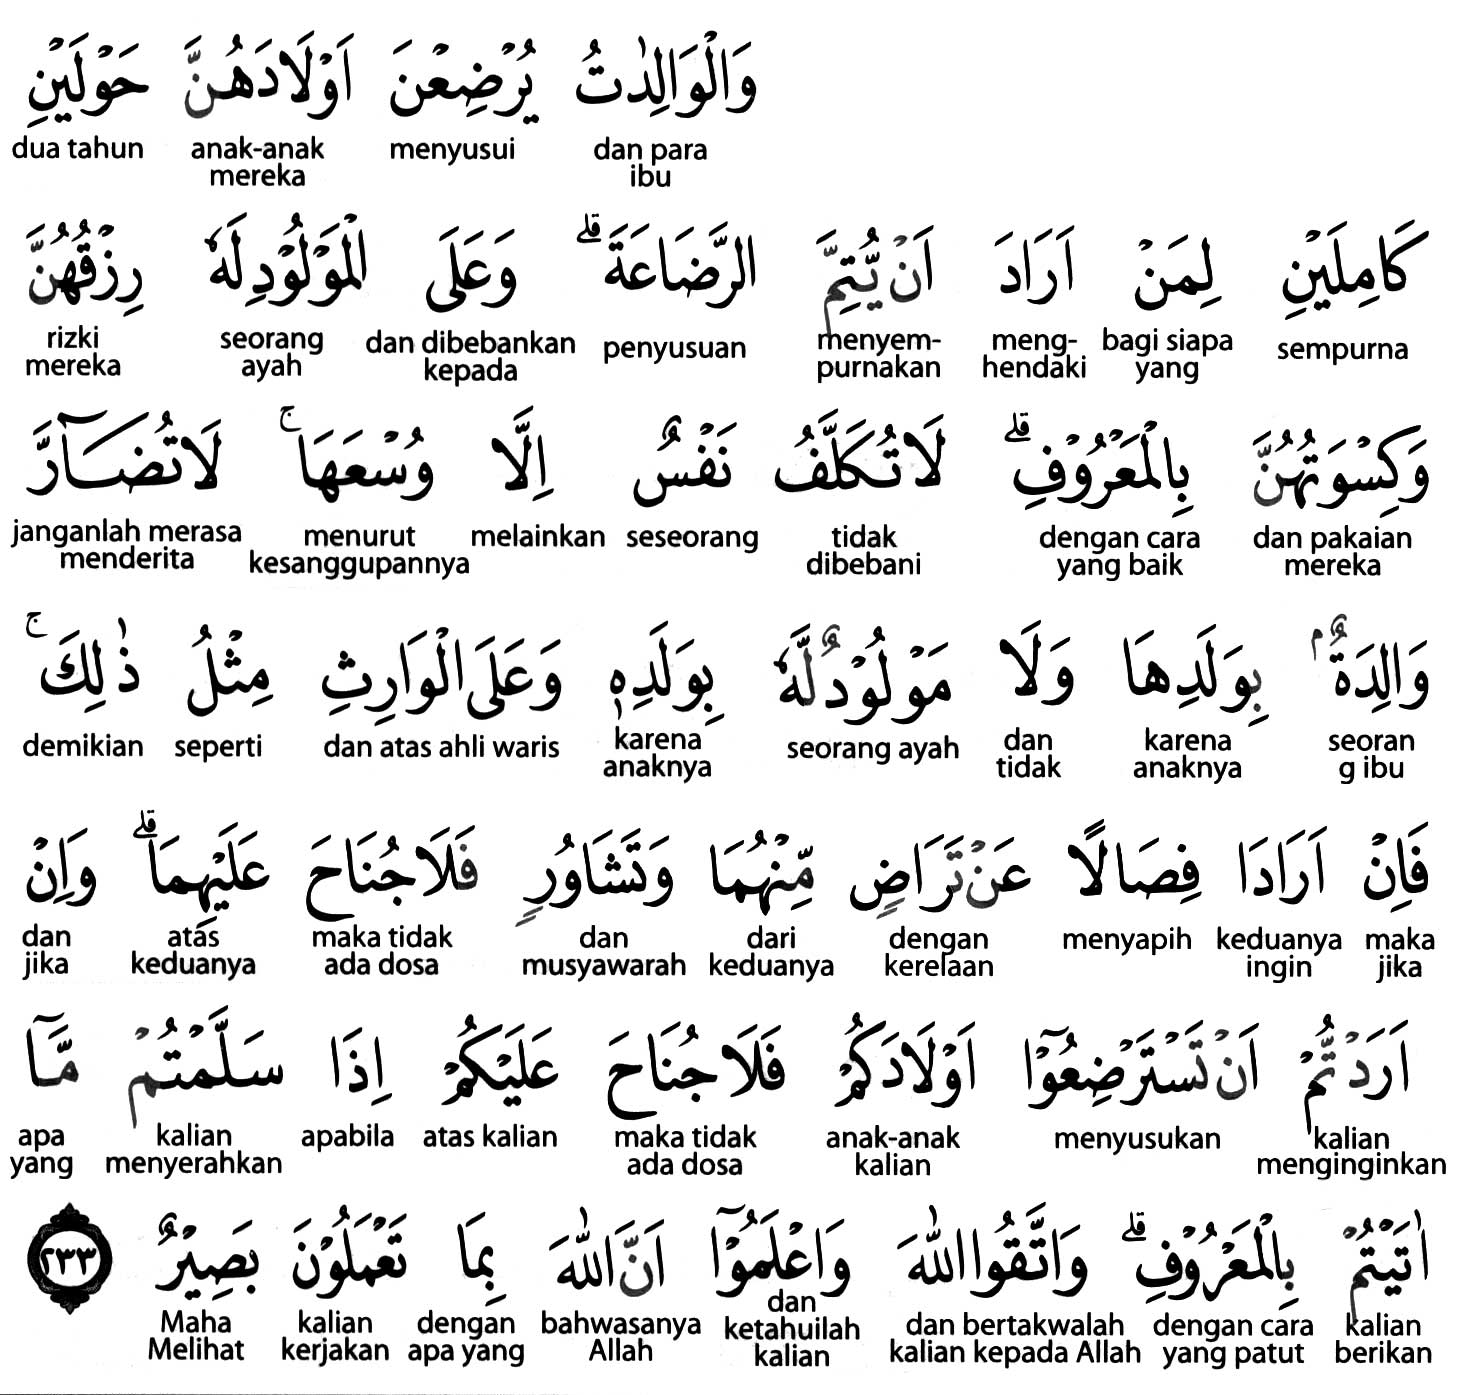 وَالْوَالِدٰتُ يُرْضِعْنَ اَوْلَادَهُنَّ حَوْلَيْنِ
dan para ibu menyusui anak-anak mereka dua tahun
كَامِلَيْنِ لِمَنْ اَرَادَ اَنْ يُّتِمَّ الرَّضَاعَةَ ۗ وَعَلَى الْمَوْلُوْدِ لَهٗ رِزْقُهُنَّ
sempurna bagi siapa yang meng-hendaki menyem-purnakan penyusuan dan dibebankan kepada seorang ayah rizki mereka
وَكِسْوَتُهُنَّ بِالْمَعْرُوْفِ ۗ لَا تُكَلَّفُ نَفْسٌ اِلَّا وُسْعَهَا ۚ لَا تُضَاۤرَّ
dan pakaian mereka dengan cara yang baik tidak dibebani seseorang melainkan menurut kesanggupannya janganlah merasa menderita
وَالِدَةٌ ۢ بِوَلَدِهَا وَلَا مَوْلُوْدٌ لَّهٗ بِوَلَدِهٖ وَعَلَى الْوَارِثِ مِثْلُ ذٰلِكَ ۚ
seoran g ibu karena anaknya dan tidak seorang ayah karena anaknya dan atas ahli waris seperti demikian
فَاِنْ اَرَادَا فِصَالًا عَنْ تَرَاضٍ مِّنْهُمَا وَتَشَاوُرٍ فَلَا جُنَاحَ عَلَيْهِمَا ۗ وَاِنْ
maka jika keduanya ingin menyapih dengan kerelaan dari keduanya dan musyawarah maka tidak ada dosa atas keduanya dan jika
اَرَدْتُّمْ اَنْ تَسْتَرْضِعُوْٓا اَوْلَادَكُمْ فَلَا جُنَاحَ عَلَيْكُمْ اِذَا سَلَّمْتُمْ مَّآ
kalian menginginkan menyusukan anak-anak kalian maka tidak ada dosa atas kalian apabila kalian menyerahkan apa yang
اٰتَيْتُمْ بِالْمَعْرُوْفِ ۗ وَاتَّقُوا اللّٰهَ وَاعْلَمُوْٓا اَنَّ اللّٰهَ بِمَا تَعْمَلُوْنَ بَصِيْرٌ ٢٣٣
kalian berikan dengan cara yang patut dan bertakwalah kalian kepada Allah dan ketahuilah kalian bahwasanya Allah dengan apa yang kalian kerjakan Maha Melihat